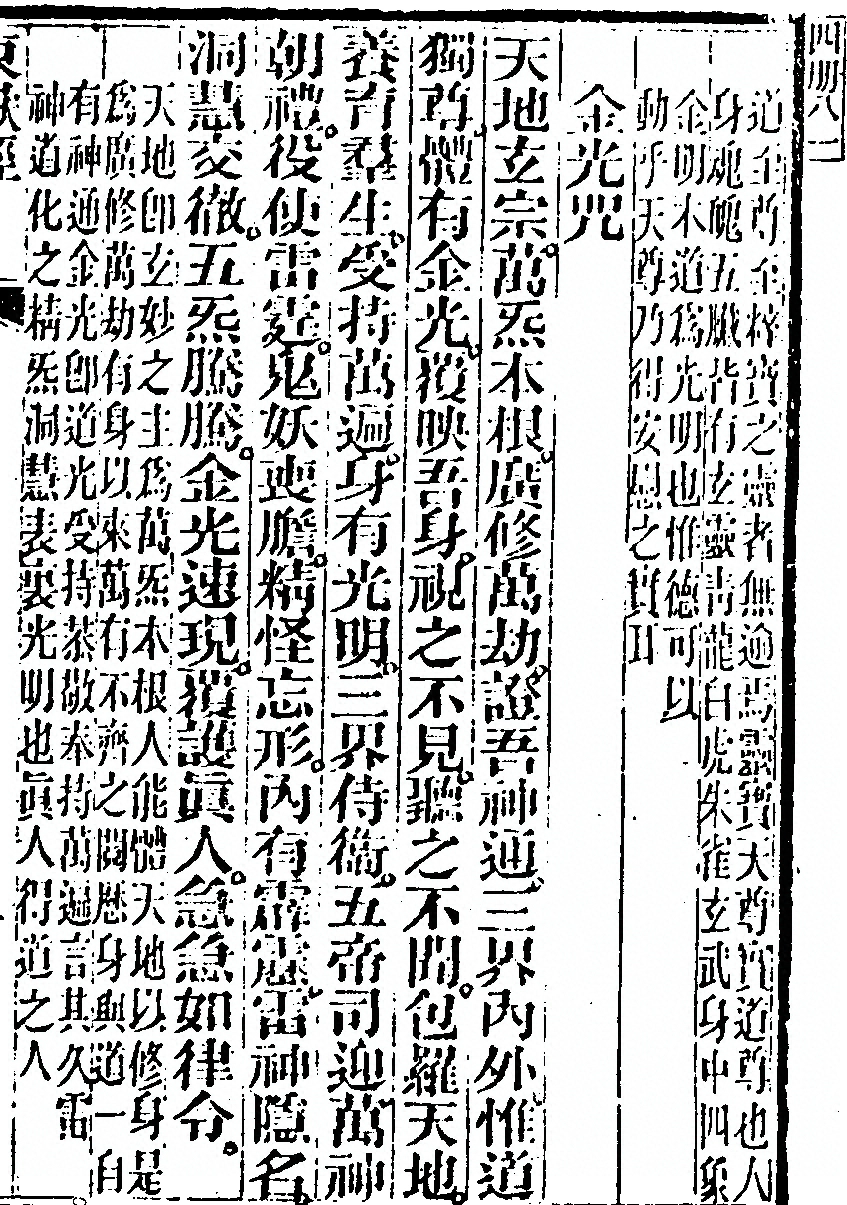 道至尊至梓寶之靈者無逾焉靈寶天尊寶道尊也人
身魂魄五臟皆有玄靈靑龍白虎朱雀玄武身中四象
金明本道爲光明也惟德可以
動乎天尊乃得安慰之寶耳
金光咒
天地玄宗萬炁本根廣修萬劫證吾神通三界內外惟道
獨尊體有金光覆映吾身視之不見聽之不聞包羅天地
養育羣生受持萬遍身有光明三界侍衞五帝司迎萬神
朝禮役使雷霆鬼妖喪膽精怪忘形內有霹靂雷神隱名
洞慧交徹五炁騰騰金光速現覆護眞人急急如律令
天地卽玄妙之主爲萬炁本根人能體天地以修身是
爲廣修萬劫有身以來萬有不齊之閱歷身與道一自
有神通金光卽道光受持恭敬奉持萬遍言其久雷
神道化之精炁洞慧表裏光明也眞人得道之人